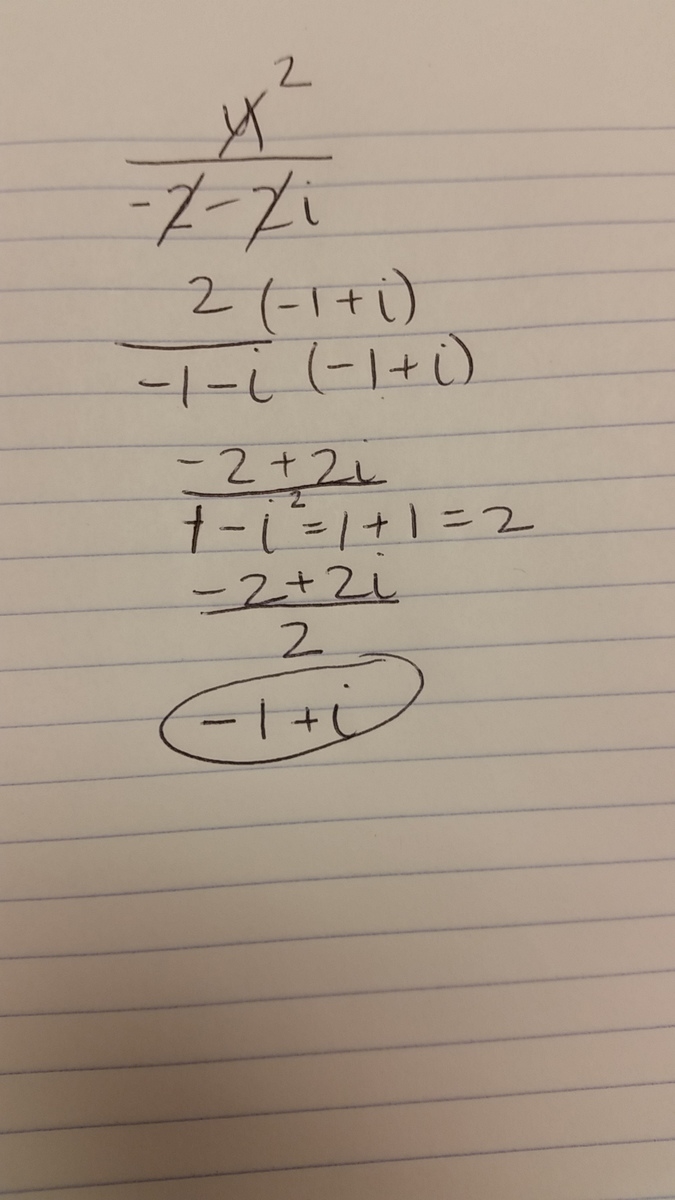 4 2
-2-2i
2 (-1+i)
-1-i (-1+i)
-2+2i
1-i²=1+1=2
-2+2i
2
-1+i